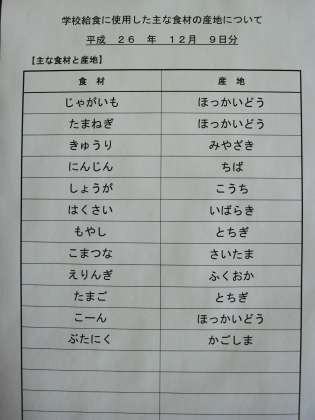 学校給食に使用した主な食材の産地について
平成 26 年 12月 9日分
【主な食材と産地】
食 材 産 地
じゃがいも ほっかいどう
たまねぎ ほっかいどう
きゅうり みやざき
にんじん ちば
しょうが こうち
はくさい いばらき
もやし とちぎ
こまつな さいたま
えりんぎ ふくおか
たまご とちぎ
こーん ほっかいどう
ぶたにく かごしま